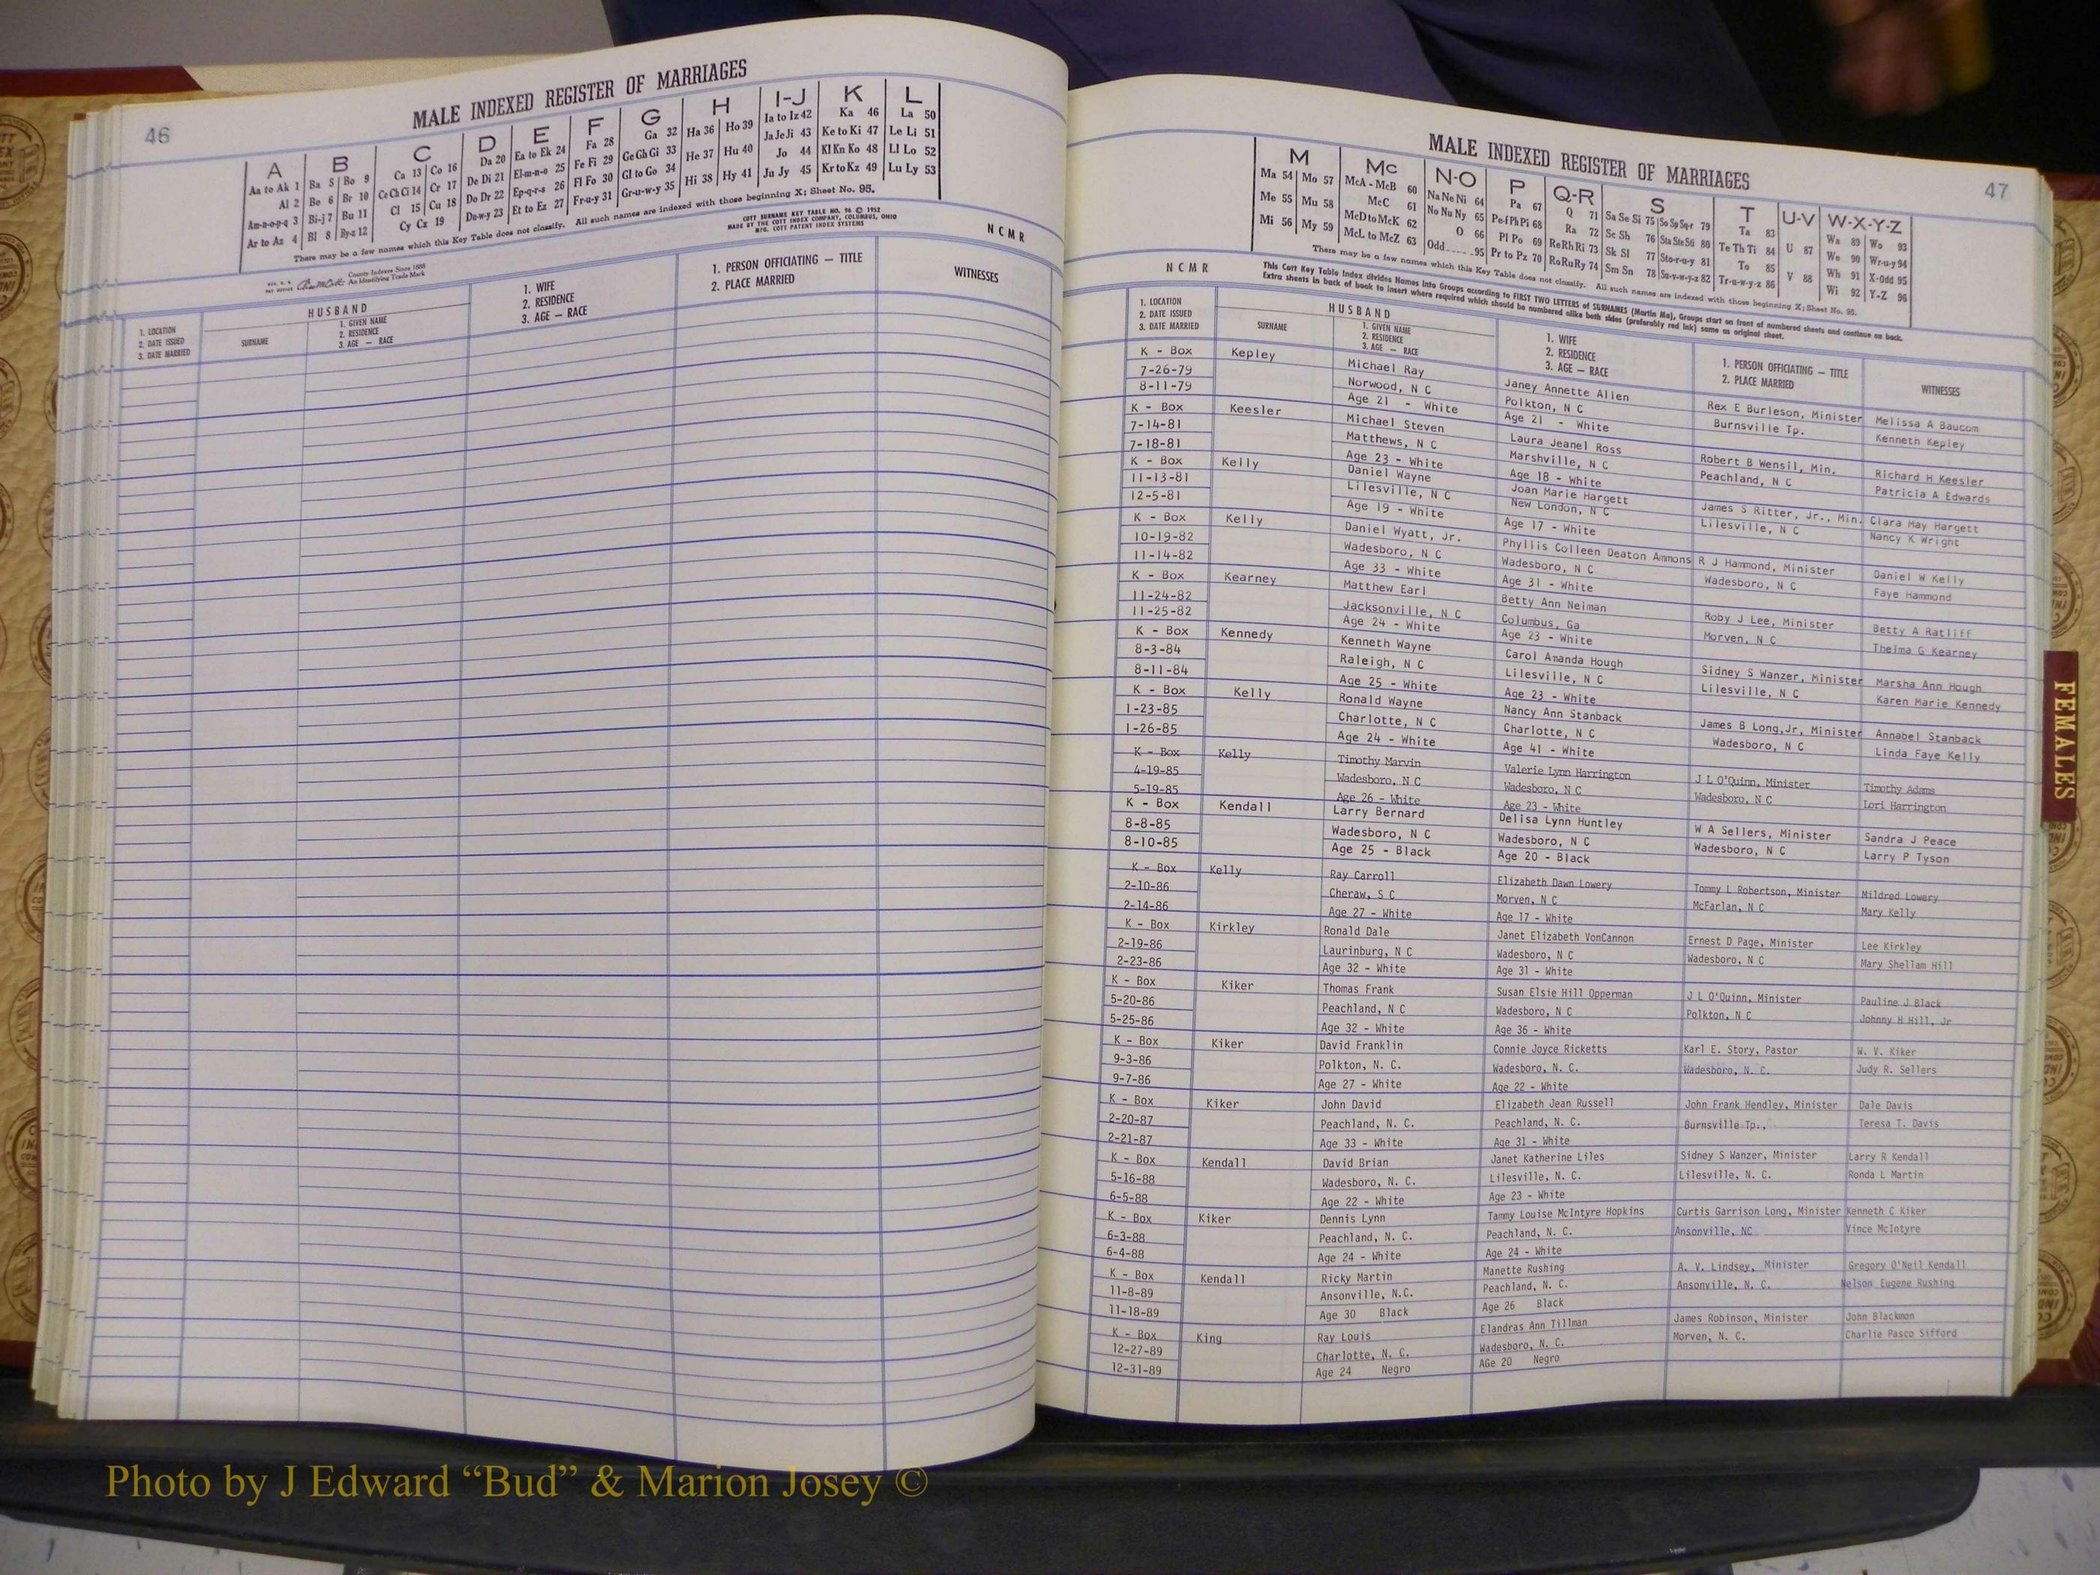 46
MALE INDEXED REGISTER OF MARRIAGES
A
Aa to Ak 1
Al 2
Am-n-o-p-q 3
Ar to Az 4
B
Ba 5 Bo 9
Be 6 Br 10
Bi-j 7 Bu 11
Bl 8 By-z 12
C
Ca 13 Co 16
Ce Ch Ci 14 Cr 17
Cl 15 Cu 18
Cy Cz 19
D
Da 20
De Di 21
Do Dr 22
Du-w-y 23
E
Ea to Ek 24
El-m-n-o 25
Ep-q-r-s 26
Et to Ez 27
F
Fa 28
Fe Fi 29
Fl Fo 30
Fr-u-y 31
G
Ga 32
Ge Gh Gi 33
Gl to Go 34
Gr-u-w-y 35
H
Ha 36 Ho 39
He 37 Hu 40
Hi 38 Hy 41
I-J
Ia to Iz 42
Ja Je Ji 43
Jo 44
Ju Jy 45
K
Ka 46
Ke to Ki 47
Kl Kn Ko 48
Kr to Kz 49
L
La 50
Le Li 51
Ll Lo 52
Lu Ly 53
There may be a few names which this Key Table does not classify. All such names are indexed with those beginning X; Sheet No. 95.
County Indexes Since 1888
An Identifying Trade Mark
COTT SURNAME KEY TABLE NO. 96 © 1952
MADE BY THE COTT INDEX COMPANY, COLUMBUS, OHIO
MFG. COTT PATENT INDEX SYSTEMS
N C M R
1. LOCATION
2. DATE ISSUED
3. DATE MARRIED
HUSBAND
SURNAME
1. GIVEN NAME
2. RESIDENCE
3. AGE — RACE
1. WIFE
2. RESIDENCE
3. AGE — RACE
1. PERSON OFFICIATING — TITLE
2. PLACE MARRIED
WITNESSES
MALE INDEXED REGISTER OF MARRIAGES
47
M
Ma 54 Mo 57
Me 55 Mu 58
Mi 56 My 59
Mc
McA - McB 60
McC 61
McD to McK 62
McL to McZ 63
N-O
Na Ne Ni 64
No Nu Ny 65
O 66
Odd 95
P
Pa 67
Pe-f Ph Pi 68
Pl Po 69
Pr to Pz 70
Q-R
Q 71
Ra 72
Re Rh Ri 73
Ro Ru Ry 74
S
Sa Se Si 75 So Sp Sq-r 79
Sc Sh 76 Sta Ste Sti 80
Sk Sl 77 Sto-r-u-y 81
Sm Sn 78 Su-v-w-y-z 82
T
Ta 83
Te Th Ti 84
To 85
Tr-u-w-y-z 86
U-V
U 87
V 88
W-X-Y-Z
Wa 89 Wo 93
We 90 Wr-u-y 94
Wh 91 X-Odd 95
Wi 92 Y-Z 96
There may be a few names which this Key Table does not classify. All such names are indexed with those beginning X; Sheet No. 95.
N C M R
This Cott Key Table Index divides Names into Groups according to FIRST TWO LETTERS of SURNAMES (Martin Ma), Groups start on front of numbered sheets and continue on back.
Extra sheets in back of book to insert where required which should be numbered alike both sides (preferably red ink) same as original sheet.
1. LOCATION
2. DATE ISSUED
3. DATE MARRIED
HUSBAND
SURNAME
1. GIVEN NAME
2. RESIDENCE
3. AGE — RACE
1. WIFE
2. RESIDENCE
3. AGE — RACE
1. PERSON OFFICIATING — TITLE
2. PLACE MARRIED
WITNESSES
K - Box Kepley Michael Ray Janey Annette Allen Rex E Burleson, Minister Melissa A Baucom
7-26-79 Norwood, N C Polkton, N C Burnsville Tp. Kenneth Kepley
8-11-79 Age 21 - White Age 21 - White
K - Box Keesler Michael Steven Laura Jeanel Ross Robert B Wensil, Min. Richard H Keesler
7-14-81 Matthews, N C Marshville, N C Peachland, N C Patricia A Edwards
7-18-81 Age 23 - White Age 18 - White
K - Box Kelly Daniel Wayne Joan Marie Hargett James S Ritter, Jr., Min. Clara May Hargett
11-13-81 Lilesville, N C New London, N C Lilesville, N C Nancy K Wright
12-5-81 Age 19 - White Age 17 - White
K - Box Kelly Daniel Wyatt, Jr. Phyllis Colleen Deaton Ammons R J Hammond, Minister Daniel W Kelly
10-19-82 Wadesboro, N C Wadesboro, N C Wadesboro, N C Faye Hammond
11-14-82 Age 33 - White Age 31 - White
K - Box Kearney Matthew Earl Betty Ann Neiman Roby J Lee, Minister Betty A Ratliff
11-24-82 Jacksonville, N C Columbus, Ga Morven, N C Thelma G Kearney
11-25-82 Age 24 - White Age 23 - White
K - Box Kennedy Kenneth Wayne Carol Amanda Hough Sidney S Wanzer, Minister Marsha Ann Hough
8-3-84 Raleigh, N C Lilesville, N C Lilesville, N C Karen Marie Kennedy
8-11-84 Age 25 - White Age 23 - White
K - Box Kelly Ronald Wayne Nancy Ann Stanback James B Long,Jr, Minister Annabel Stanback
1-23-85 Charlotte, N C Charlotte, N C Wadesboro, N C Linda Faye Kelly
1-26-85 Age 24 - White Age 41 - White
K - Box Kelly Timothy Marvin Valerie Lynn Harrington J L O'Quinn, Minister Timothy Adams
4-19-85 Wadesboro, N C Wadesboro, N C Wadesboro, N C Lori Harrington
5-19-85 Age 26 - White Age 23 - White
K - Box Kendall Larry Bernard Delisa Lynn Huntley W A Sellers, Minister Sandra J Peace
8-8-85 Wadesboro, N C Wadesboro, N C Wadesboro, N C Larry P Tyson
8-10-85 Age 25 - Black Age 20 - Black
K - Box Kelly Ray Carroll Elizabeth Dawn Lowery Tommy L Robertson, Minister Mildred Lowery
2-10-86 Cheraw, S C Morven, N C McFarlan, N C Mary Kelly
2-14-86 Age 27 - White Age 17 - White
K - Box Kirkley Ronald Dale Janet Elizabeth VonCannon Ernest D Page, Minister Lee Kirkley
2-19-86 Laurinburg, N C Wadesboro, N C Wadesboro, N C Mary Shellam Hill
2-23-86 Age 32 - White Age 31 - White
K - Box Kiker Thomas Frank Susan Elsie Hill Opperman J L O'Quinn, Minister Pauline J Black
5-20-86 Peachland, N C Wadesboro, N C Polkton, N C Johnny H Hill, Jr
5-25-86 Age 32 - White Age 36 - White
K - Box Kiker David Franklin Connie Joyce Ricketts Karl E. Story, Pastor W. V. Kiker
9-3-86 Polkton, N. C. Wadesboro, N. C. Wadesboro, N. C. Judy R. Sellers
9-7-86 Age 27 - White Age 22 - White
K - Box Kiker John David Elizabeth Jean Russell John Frank Hendley, Minister Dale Davis
2-20-87 Peachland, N. C. Peachland, N. C. Burnsville Tp., Teresa T. Davis
2-21-87 Age 33 - White Age 31 - White
K - Box Kendall David Brian Janet Katherine Liles Sidney S Wanzer, Minister Larry R Kendall
5-16-88 Wadesboro, N. C. Lilesville, N. C. Lilesville, N. C. Ronda L Martin
6-5-88 Age 22 - White Age 23 - White
K - Box Kiker Dennis Lynn Tammy Louise McIntyre Hopkins Curtis Garrison Long, Minister Kenneth C Kiker
6-3-88 Peachland, N. C. Peachland, N. C. Ansonville, NC Vince McIntyre
6-4-88 Age 24 - White Age 24 - White
K - Box Kendall Ricky Martin Manette Rushing A. V. Lindsey, Minister Gregory O'Neil Kendall
11-8-89 Ansonville, N.C. Peachland, N. C. Ansonville, N. C. Nelson Eugene Rushing
11-18-89 Age 30 Black Age 26 Black
K - Box King Ray Louis Elandras Ann Tillman James Robinson, Minister John Blackmon
12-27-89 Charlotte, N. C. Wadesboro, N. C. Morven, N. C. Charlie Pasco Sifford
12-31-89 Age 24 Negro AGe 20 Negro
FEMALES
Photo by J Edward “Bud” & Marion Josey ©